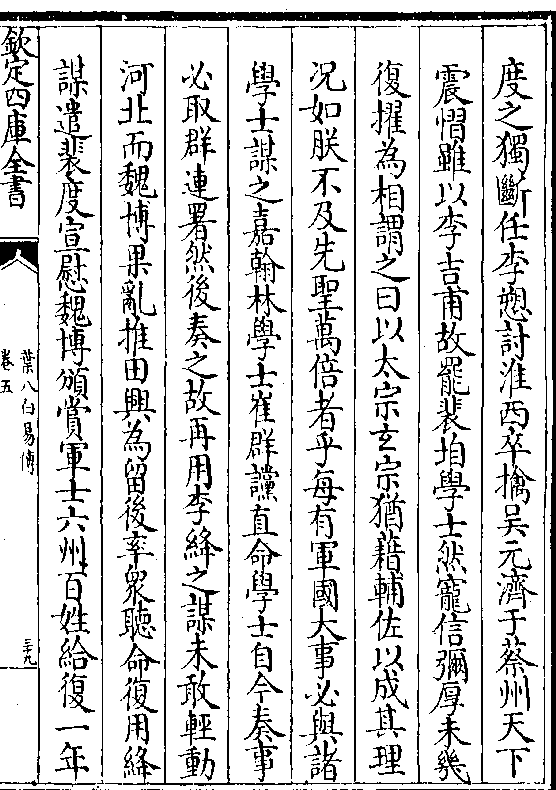 度之獨斷任李愬討淮西卒擒吴元濟于蔡州天下
震慴雖以李吉甫故罷裴垍學士然寵信彌厚未幾
復擢為相謂之曰以太宗玄宗猶藉輔佐以成其理
况如朕不及先聖萬倍者乎每有軍國大事必與諸
學士謀之嘉翰林學士崔群讜直命學士自今奏事
必取群連署然後奏之故再用李絳之謀未敢輕動
河北而魏博果亂推田興為留後率衆聽命復用絳
謀遣裴度宣慰魏博頒賞軍士六州百姓給復一年
欽定四庫全書
葉八白易傳
卷五
三十九